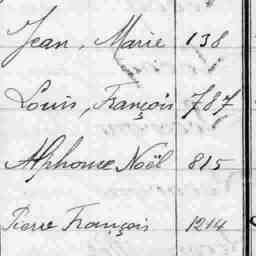 Jean, Marie 138
Louis, François 787
Alphonse Noël 815
Pierre François 1214